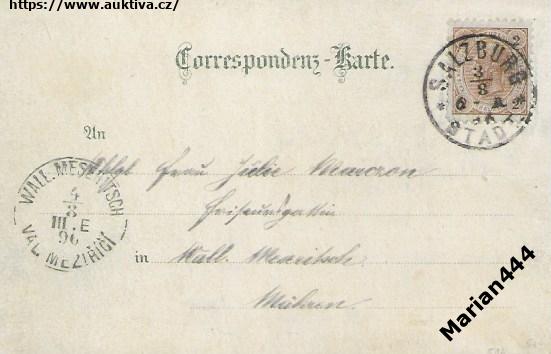 https://www.auktiva.cz/
Correspondenz-Karte.
SALZBURG
3/8
6 - A
96
STADT
An
Frau Julie
WALL. MESERITSCH
4/8
III. E
96
VAL. MEZIŘÍČÍ
in Wall. Meseritsch
Mähren.
Marian444